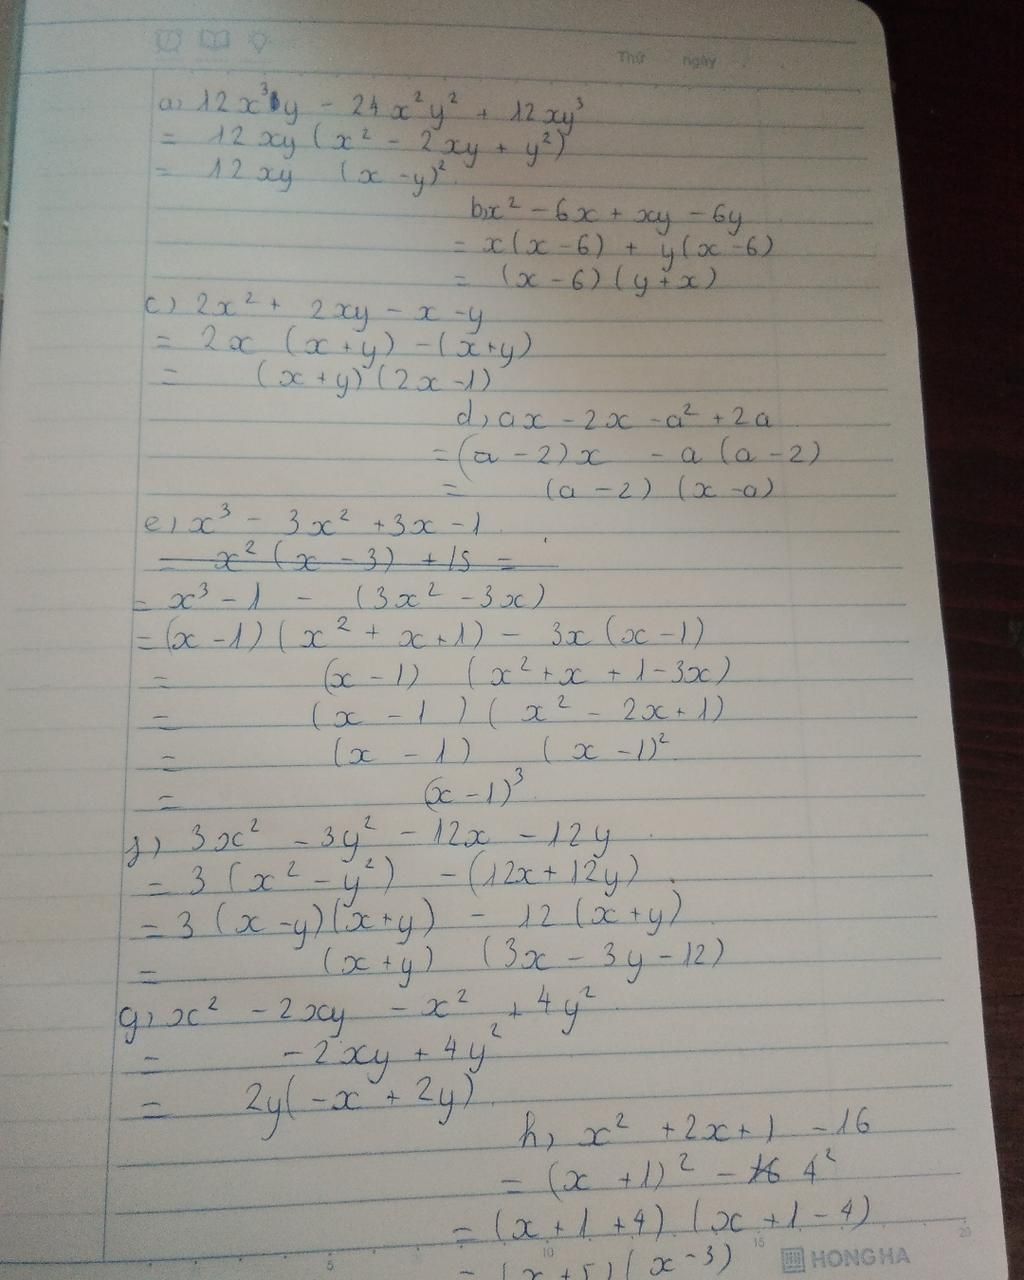 Thứ ngày
a, 12x³y - 24x²y² + 12xy³
= 12xy (x² - 2xy + y²)
= 12xy (x - y)².
b, x² - 6x + xy - 6y
= x(x - 6) + y(x - 6)
= (x - 6)(y + x)
c) 2x² + 2xy - x - y
= 2x (x + y) - (x + y)
= (x + y)(2x - 1)
d, ax - 2x - a² + 2a
= (a - 2)x - a(a - 2)
= (a - 2) (x - a)
e, x³ - 3x² + 3x - 1
= x² (x - 3) + 15 =
= x³ - 1 - (3x² - 3x)
= (x - 1)(x² + x + 1) - 3x(x - 1)
= (x - 1) (x² + x + 1 - 3x)
= (x - 1)(x² - 2x + 1)
= (x - 1) (x - 1)²
= (x - 1)³
f) 3x² - 3y² - 12x - 12y
= 3(x² - y²) - (12x + 12y)
= 3(x - y)(x + y) - 12(x + y)
= (x + y) (3x - 3y - 12)
g, x² - 2xy - x² + 4y²
= - 2xy + 4y²
= 2y(-x + 2y)
h, x² + 2x + 1 - 16
= (x + 1)² - 16 4²
= (x + 1 + 4)(x + 1 - 4)
= (x + 5)(x - 3)
5 10 15 20
HONG HA